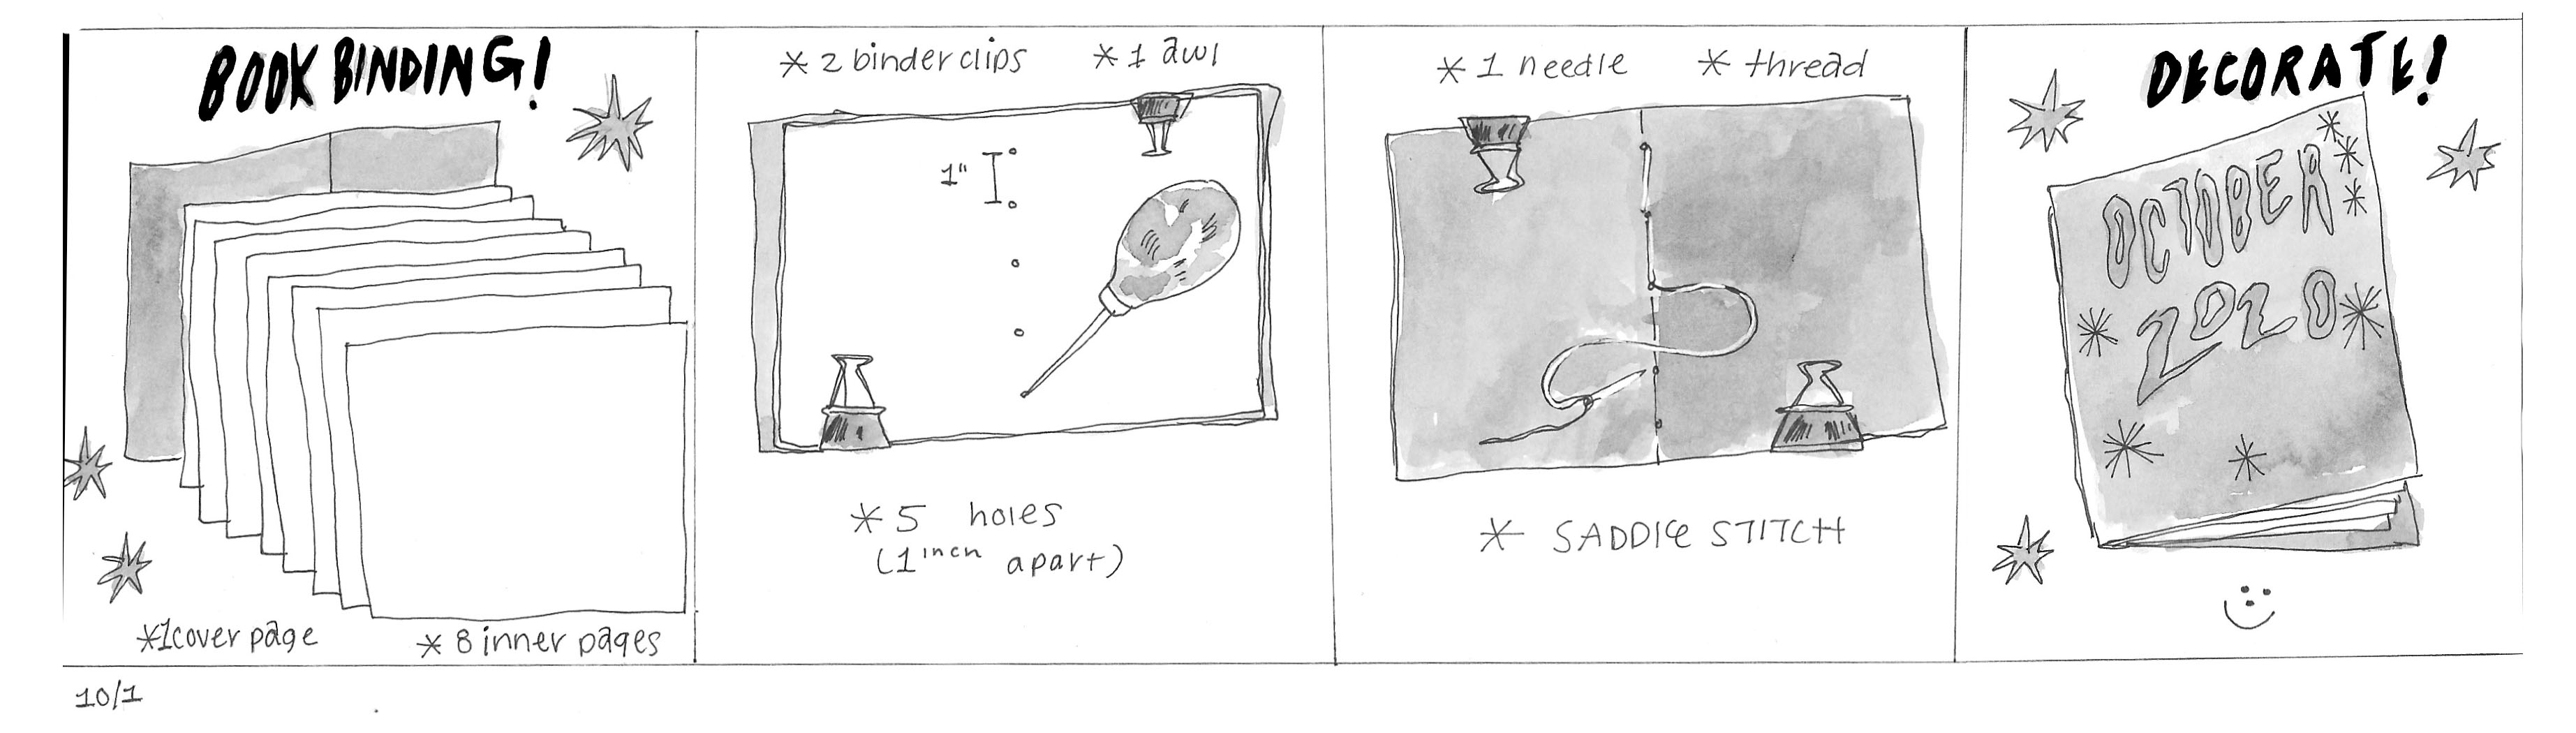 BOOK BINDING!
*1 cover page
* 8 inner pages
* 2 binder clips
* 1 awl
1"
* 5 holes
(1 inch apart)
* 1 needle
* thread
* SADDLE STITCH
DECORATE!
OCTOBER
2020
10/1